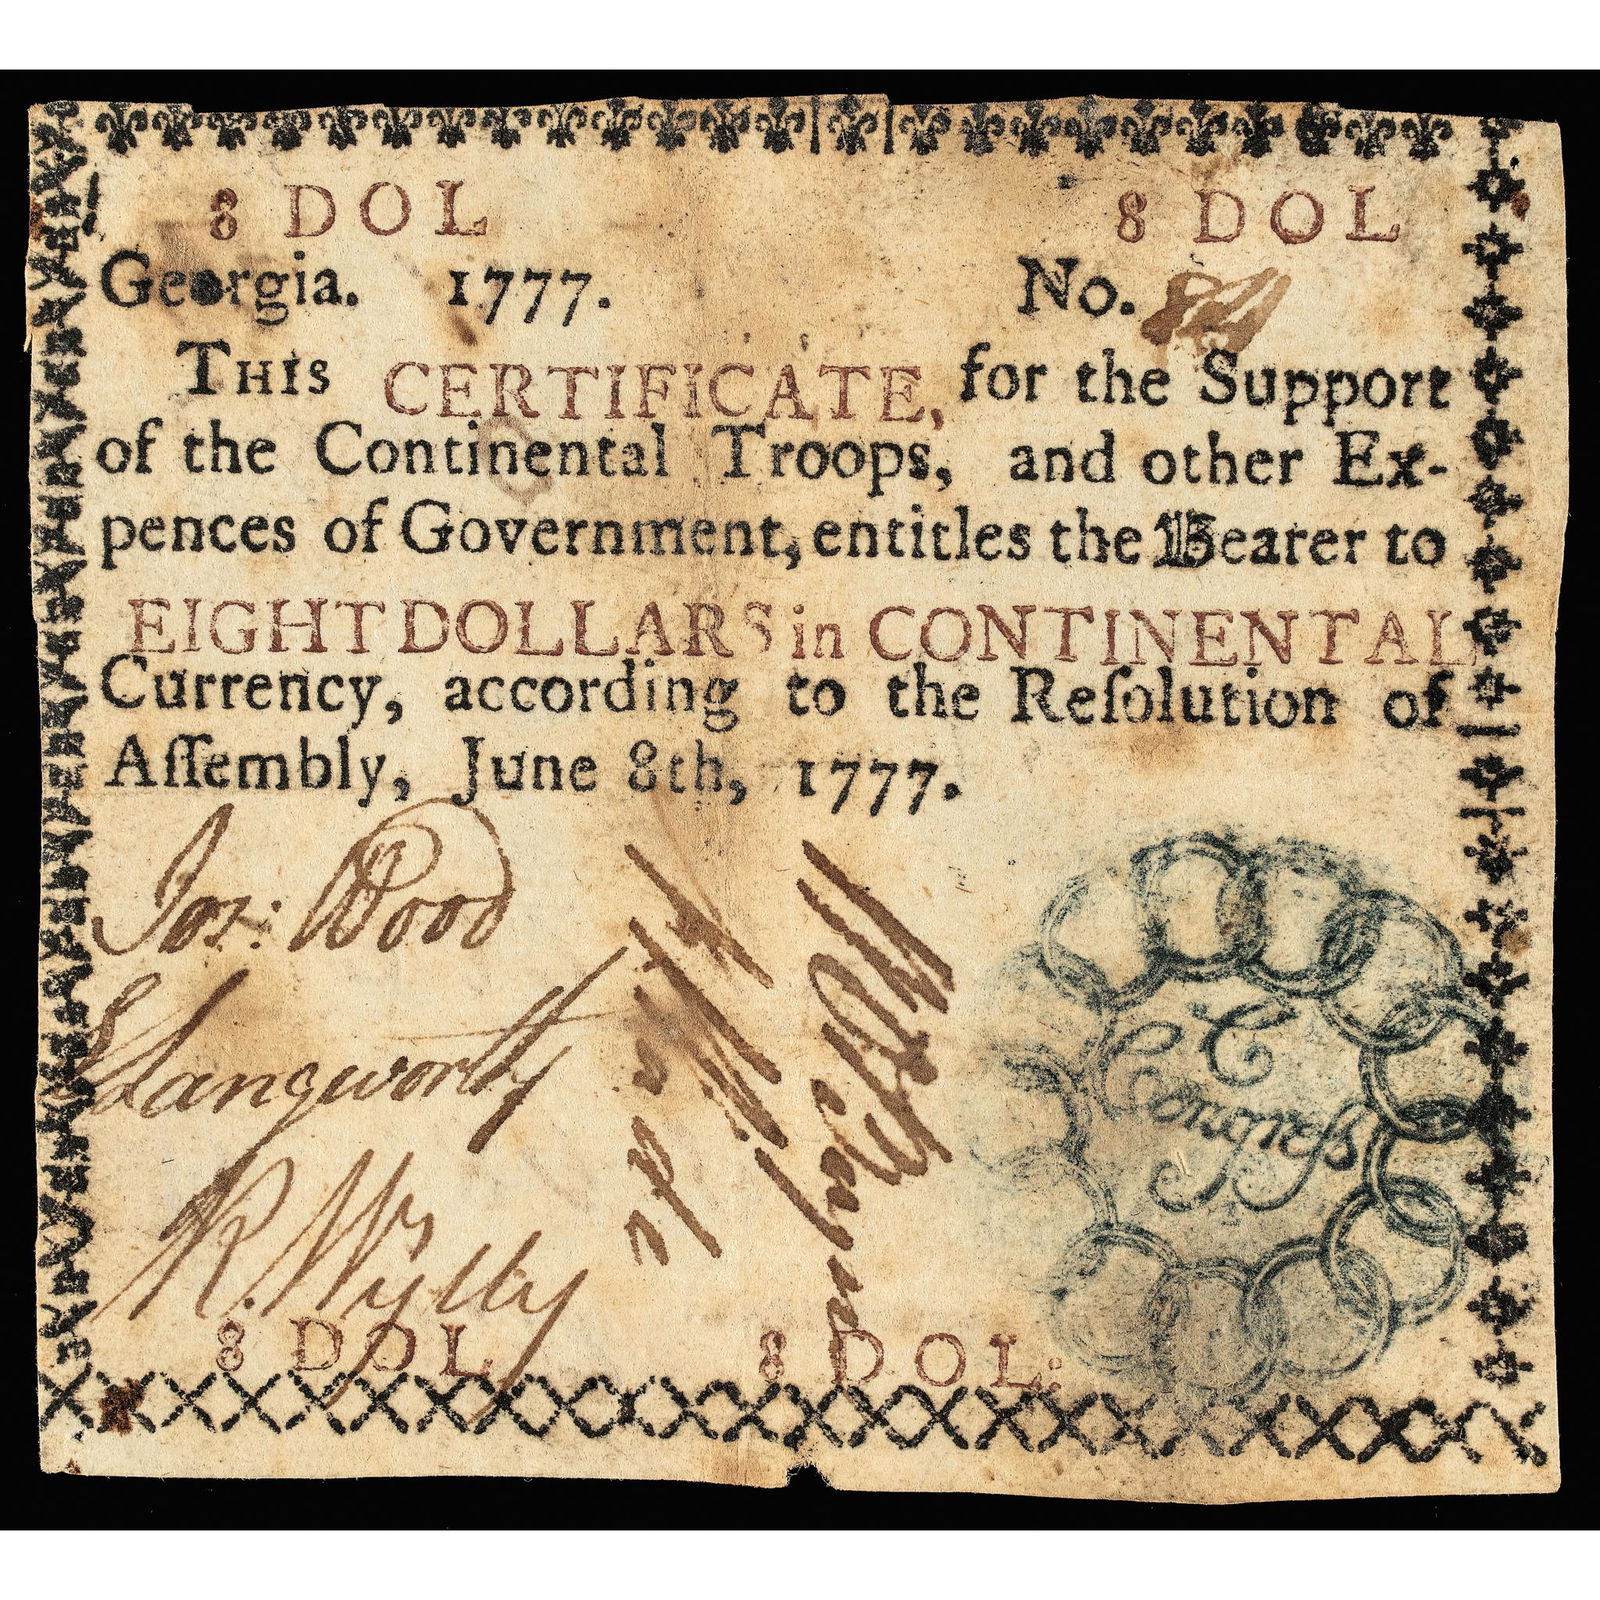 8 DOL 8 DOL
Georgia. 1777. No.
THIS CERTIFICATE, for the Support
of the Continental Troops, and other Ex-
pences of Government, entitles the Bearer to
EIGHT DOLLARS in CONTINENTAL
Currency, according to the Reſolution of
Aſſembly, June 8th, 1777.
Jos: Wood
Langworthy
R. Wylly
Congreſs
8 DOL 8 DOL: